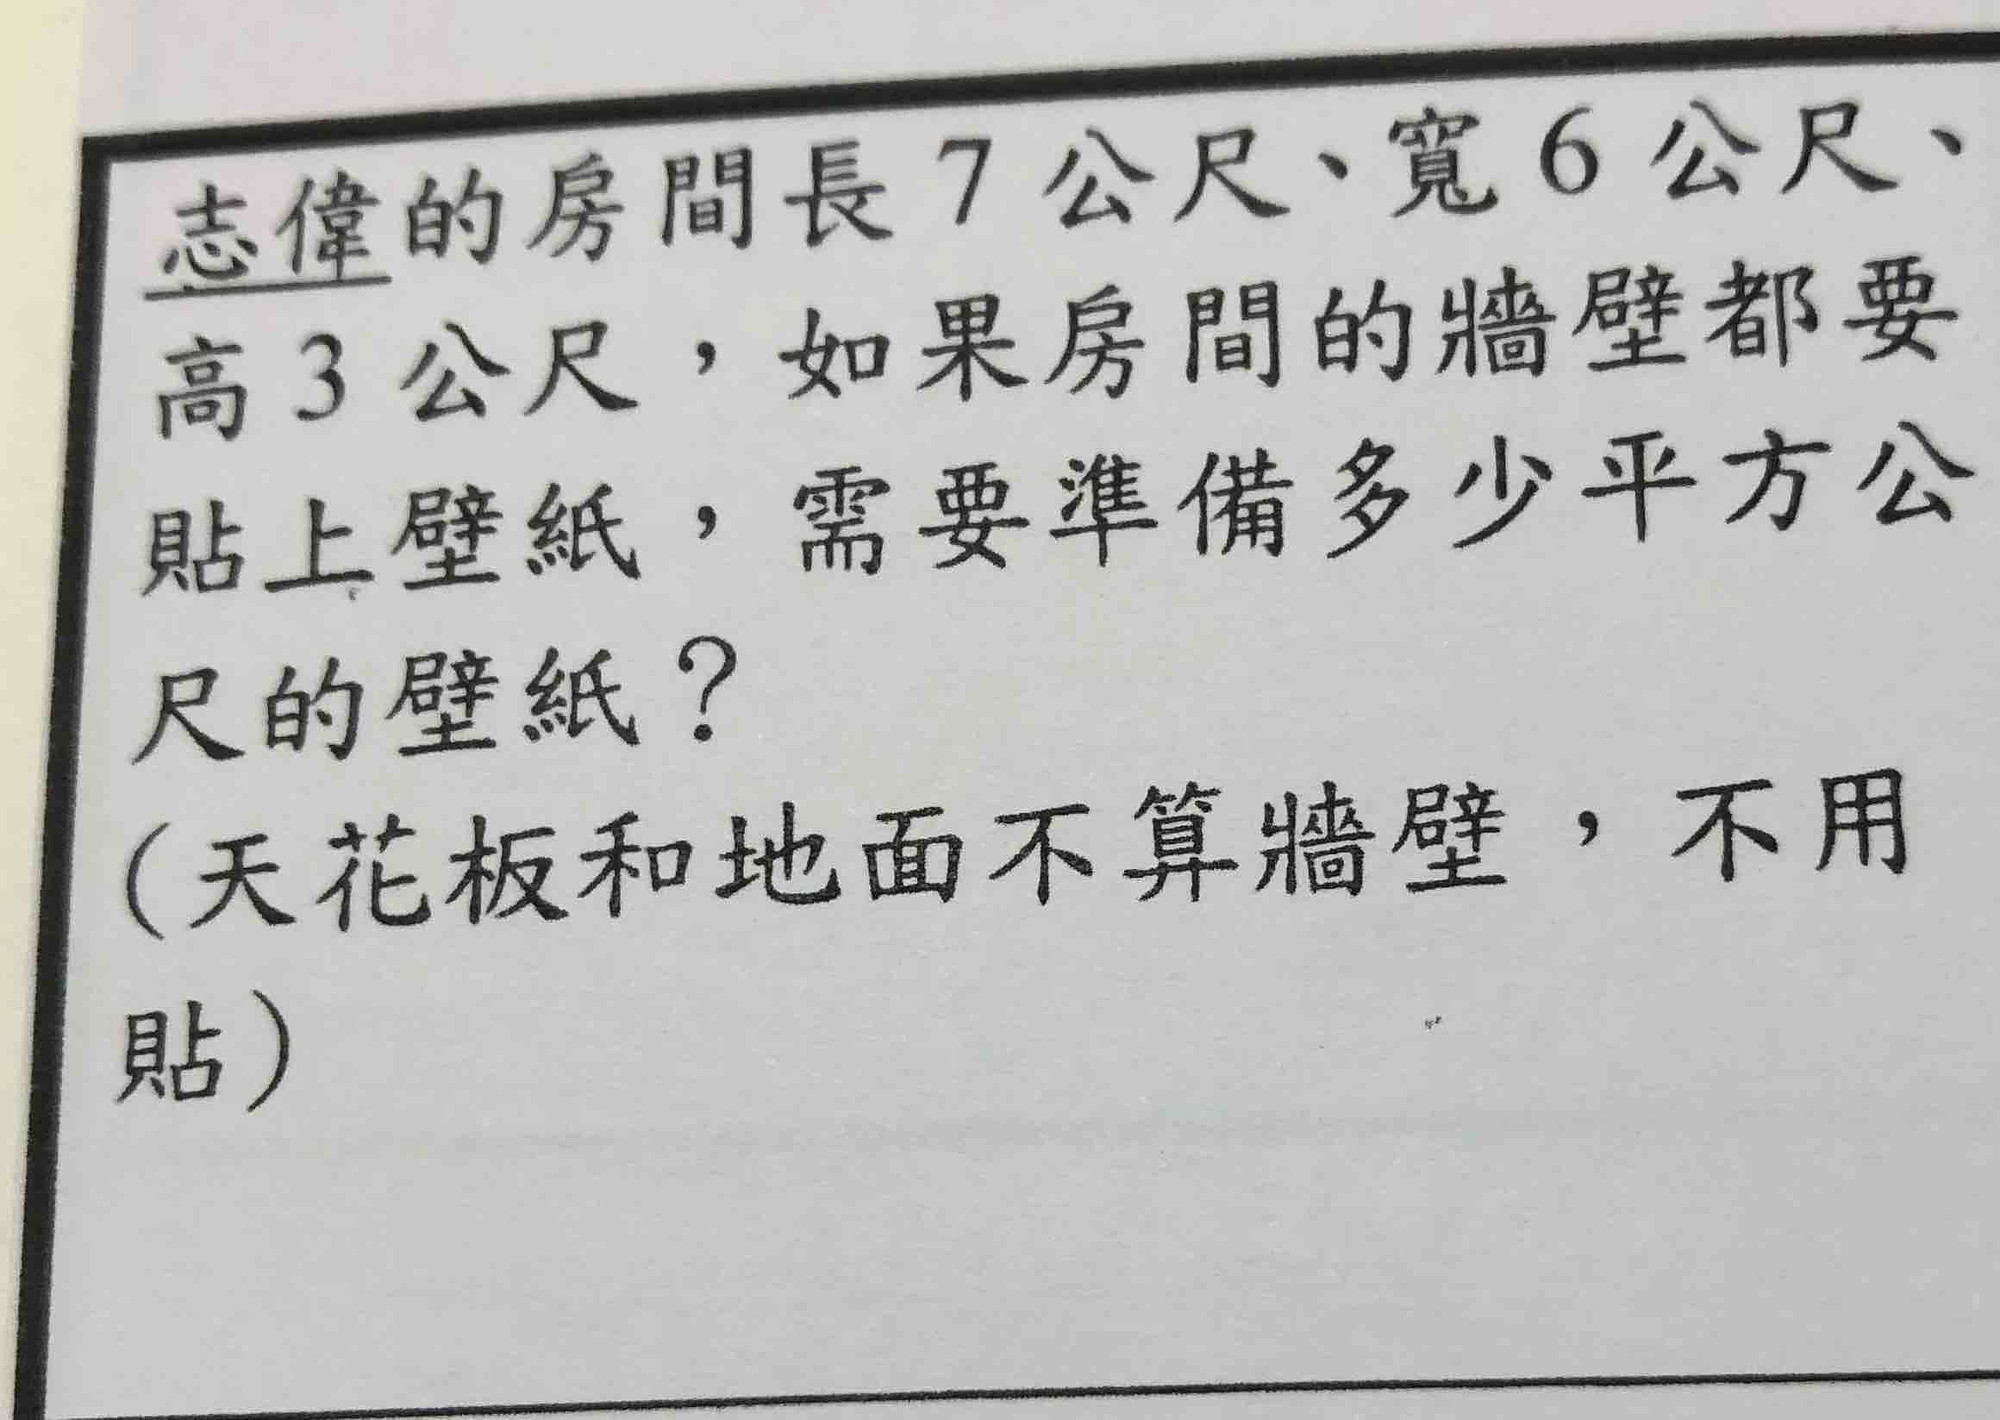 志偉的房間長7公尺、寬6公尺、
高3公尺，如果房間的牆壁都要
貼上壁紙，需要準備多少平方公
尺的壁紙？
（天花板和地面不算牆壁，不用
貼）